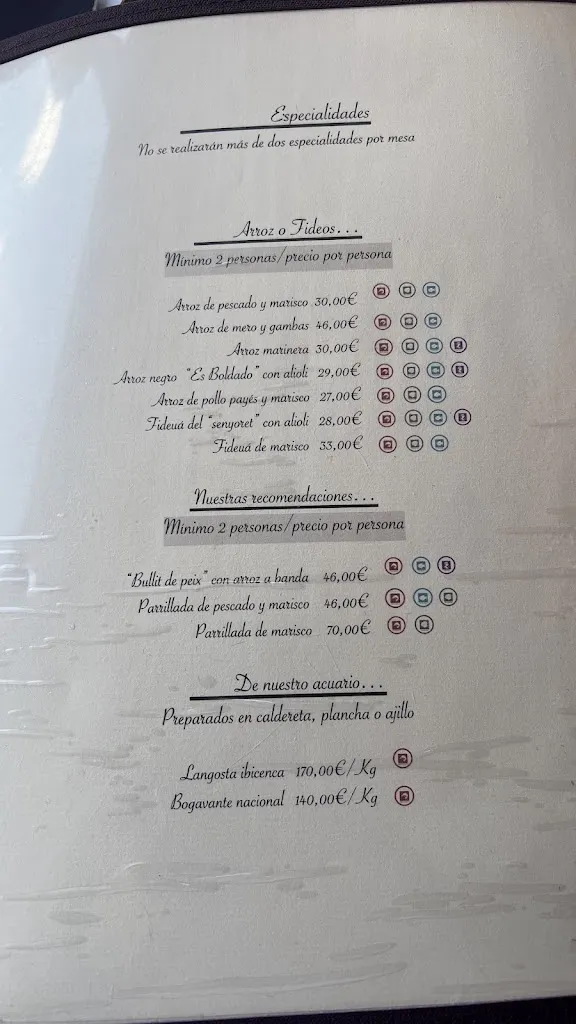 Especialidades
No se realizarán más de dos especialidades por mesa
Arroz o Fideos...
Mínimo 2 personas/precio por persona
Arroz de pescado y marisco 30,00€
Arroz de mero y gambas 46,00€
Arroz marinera 30,00€
Arroz negro "Es Boldado" con alioli 29,00€
Arroz de pollo payés y marisco 27,00€
Fideuá del "senyoret" con alioli 28,00€
Fideuá de marisco 33,00€
Nuestras recomendaciones...
Mínimo 2 personas/precio por persona
"Bullit de peix" con arroz a banda 46,00€
Parrillada de pescado y marisco 46,00€
Parrillada de marisco 70,00€
De nuestro acuario...
Preparados en caldereta, plancha o ajillo
Langosta ibicenca 170,00€/Kg
Bogavante nacional 140,00€/Kg